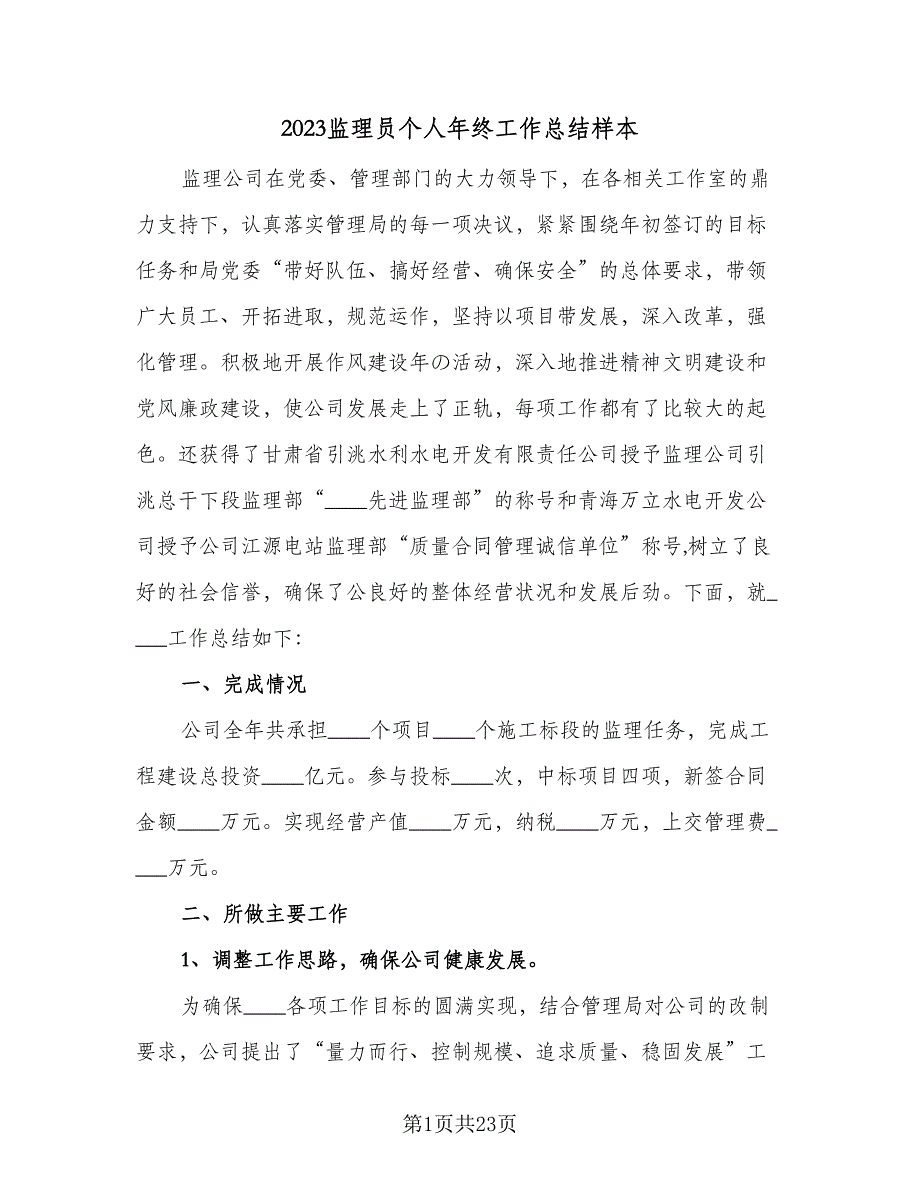 2023监理员个人年终工作总结样本
监理公司在党委、管理部门的大力领导下，在各相关工作室的鼎
力支持下，认真落实管理局的每一项决议，紧紧围绕年初签订的目标
任务和局党委“带好队伍、搞好经营、确保安全”的总体要求，带领
广大员工、开拓进取，规范运作，坚持以项目带发展，深入改革，强
化管理。积极地开展作风建设年の活动，深入地推进精神文明建设和
党风廉政建设，使公司发展走上了正轨，每项工作都有了比较大的起
色。还获得了甘肃省引洮水利水电开发有限责任公司授予监理公司引
洮总干下段监理部“____先进监理部”的称号和青海万立水电开发公
司授予公司江源电站监理部“质量合同管理诚信单位”称号,树立了良
好的社会信誉，确保了公良好的整体经营状况和发展后劲。下面，就_
___工作总结如下：
一、完成情况
公司全年共承担____个项目____个施工标段的监理任务，完成工
程建设总投资____亿元。参与投标____次，中标项目四项，新签合同
金额____万元。实现经营产值____万元，纳税____万元，上交管理费_
___万元。
二、所做主要工作
1、调整工作思路，确保公司健康发展。
为确保____各项工作目标的圆满实现，结合管理局对公司的改制
要求，公司提出了“量力而行、控制规模、追求质量、稳固发展”工
第1页共23页